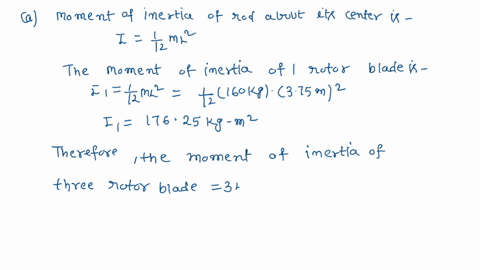 (a) Moment of inertia of rod about its center is-
I = 1/12 mL²
The moment of inertia of 1 rotor blade is-
I₁ = 1/12 mL² = 1/12 (160kg)·(3.75m)²
I₁ = 176.25 kg-m²
Therefore, the moment of inertia of
three rotor blade = 3